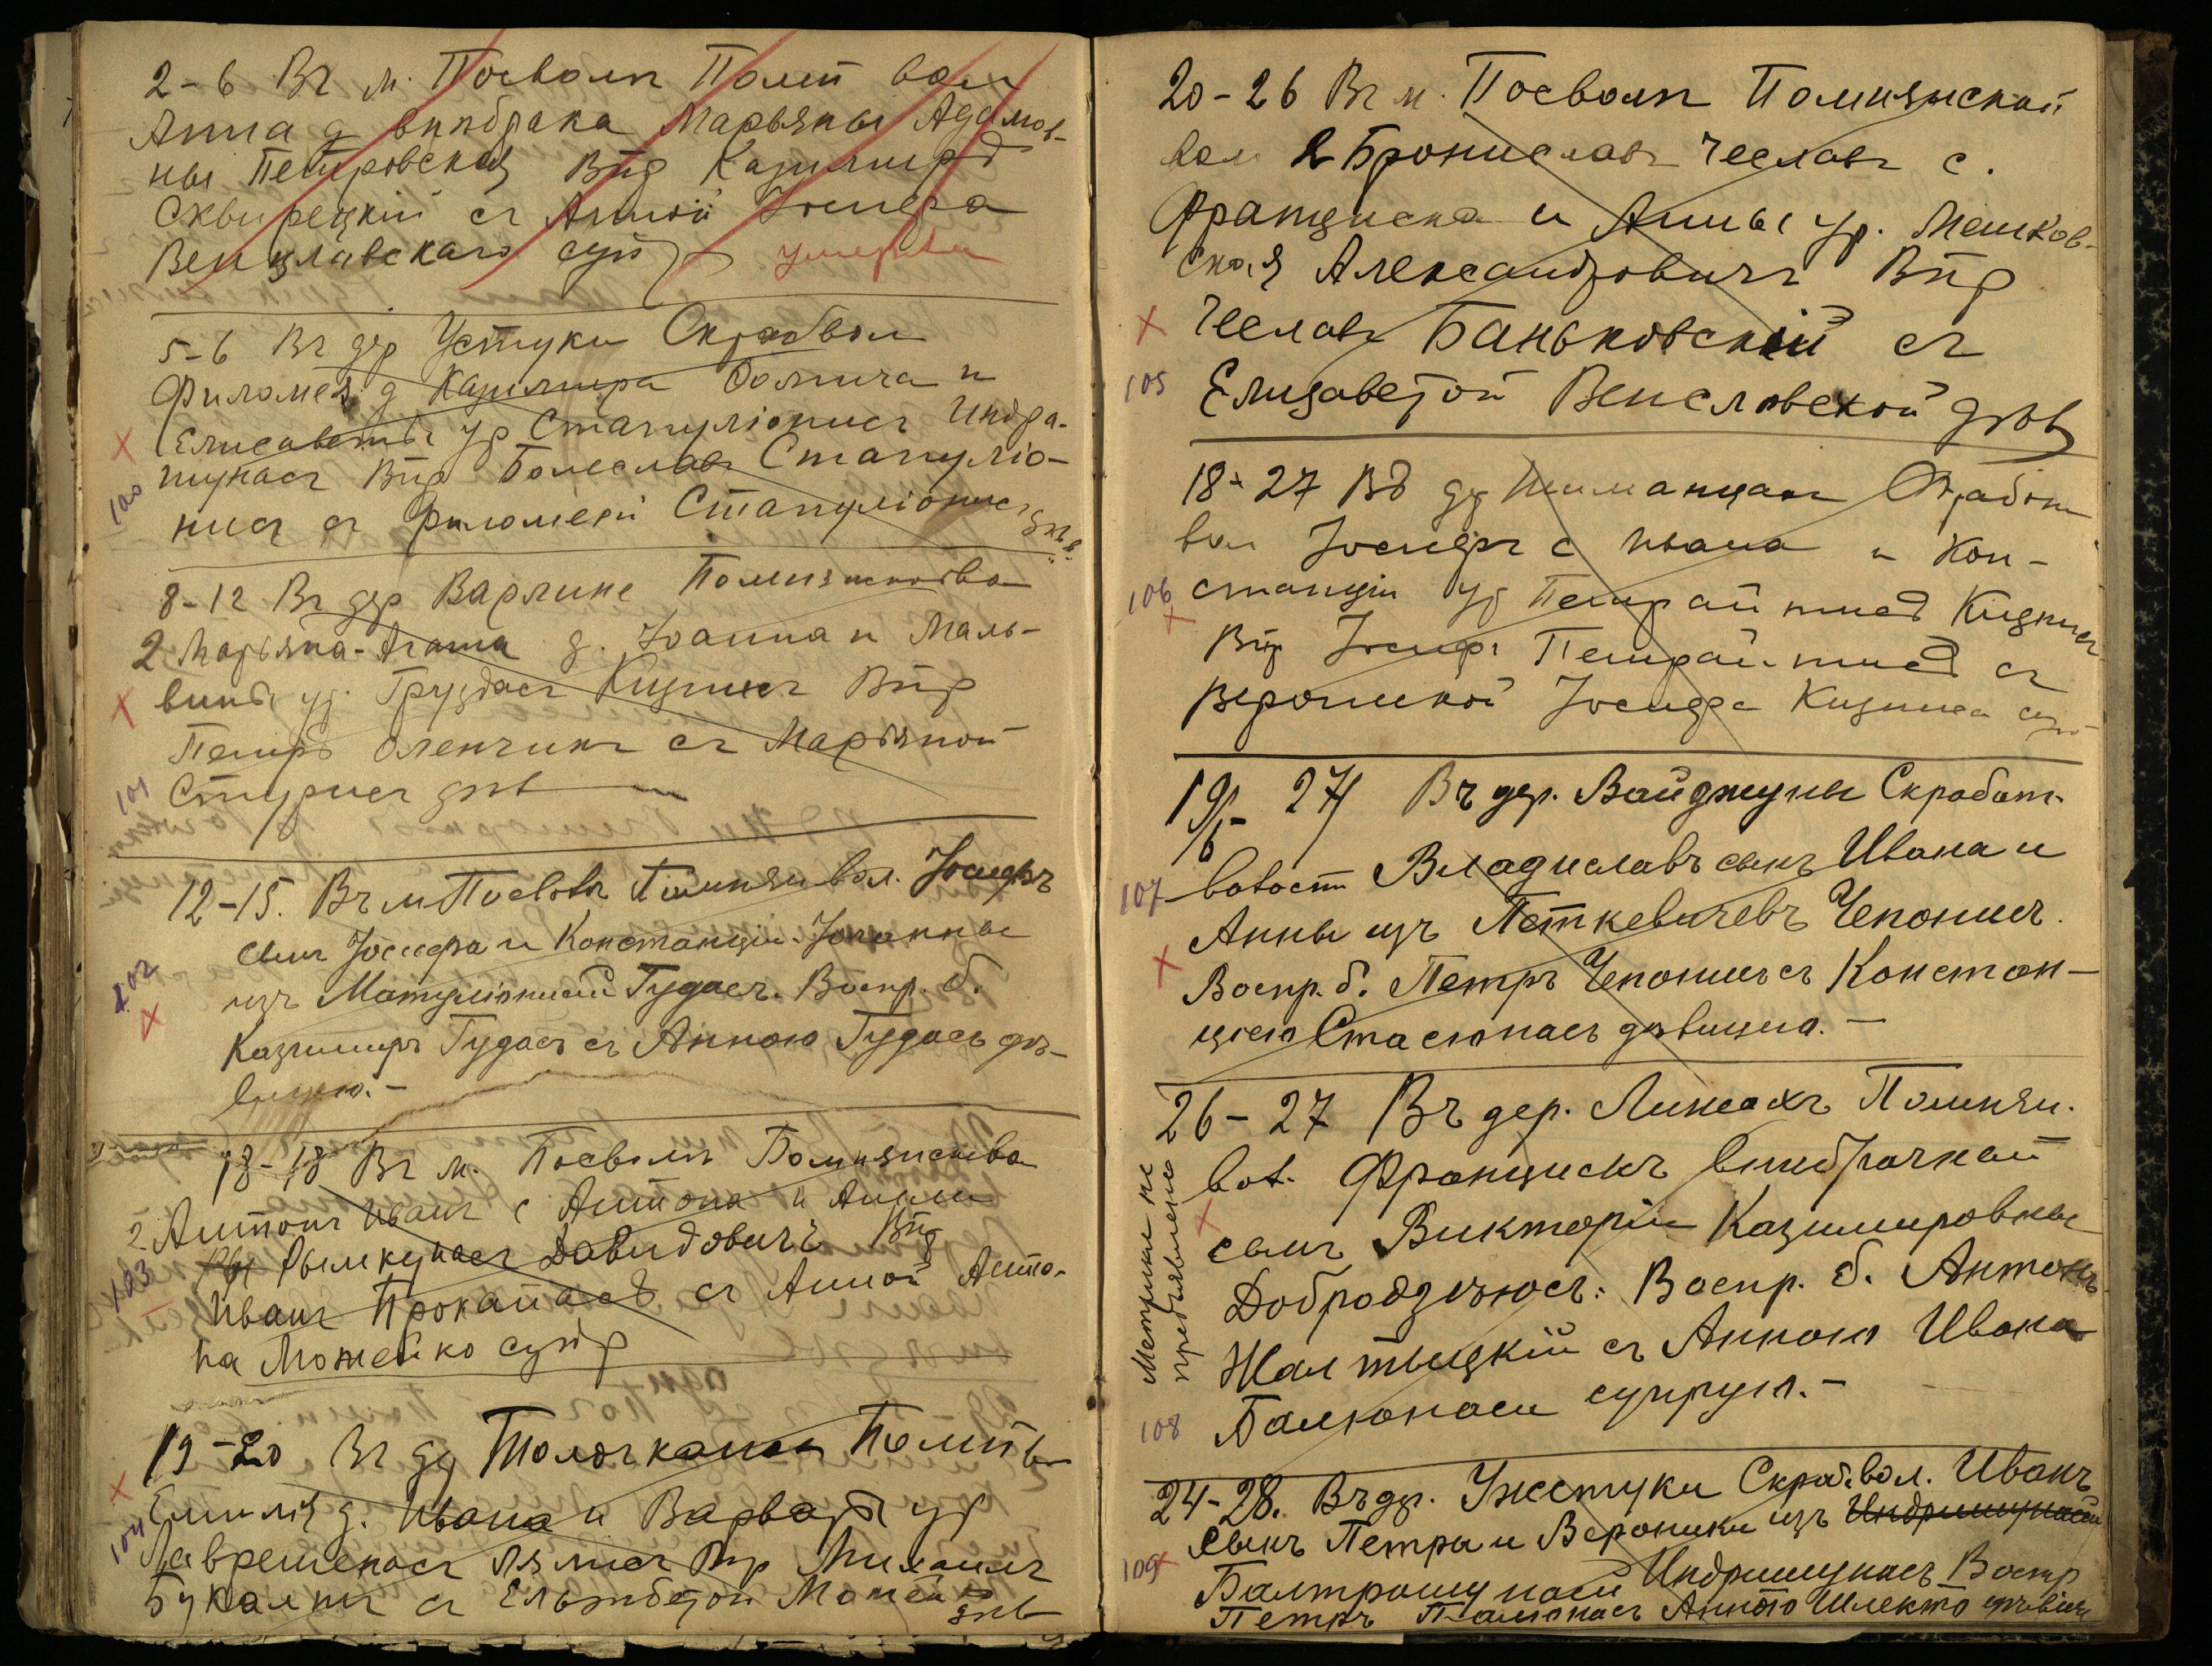 2-6 Въ м. Посволъ Помп вол
Анна д внѣбрака Марьяны Адамов-
ны Петровской Впр Казимиръ
Сквирецкій съ Анной Іосифа
Венцлавскаго суп умерла
5-6 Въ дер Устуки Скраб вол
Филомен. д Казимира Доминика и
Елисаветы ур Станулѳніисъ Индра-
шунасъ Впр Болеславъ Стануліо-
нисъ съ Филоменой Стануліонисъ двв
100
8-12 Въ дер Варлине Помпянск вол
2 Марьяна-Агата д. Іоанна и Маль-
вины ур. Груздасъ Кизинисъ Впр
Петръ Оленчикъ съ Марьяной
Стурисъ двв
101
12-15. Въ м Посволъ Помпян вол. Іосифъ
сынъ Іосифа и Констанціи-Іоганны
изъ Матуліонисъ Гудасъ. Воспр. б.
Казимиръ Гудасъ съ Анною Гудасъ дѣ-
вицею.-
102
18-18 Въ м. Посволъ Помпянск вол
2 Антонъ Иванъ с Антона и Анны
Рымкунасъ Давидовичъ Впр
Иванъ Прокапасъ съ Анной Анто-
на Можейко супр
103
19-20 Въ др Толочканы Помп в
Емилія д. Ивана и Варвары ур
Лаврененасъ Лямисъ Впр Михаилъ
Букалтисъ съ Ельжбетой Можей
двв
104
20-26 Въ м. Посволъ Помпянской
вол 2 Брониславъ Чеславъ с.
Францишка и Анны ур. Мешков-
ская Александровичъ Впр
Чеславъ Баньковскій съ
Елизаветой Венславской двв
105
18-27 Въ др Шиманцахъ Скработ
вол Іосифъ с Ивана и Кон-
станціи ур Петрайтисъ Кизнисъ
Впр Іосифъ Петрайтисъ съ
Вероникой Іосифа Кизниса суп
106
19/6- 27 Въ дер. Вайджуны Скработ.
волости Владиславъ сынъ Ивана и
Анны изъ Петкевичевъ Чепонисъ.
Воспр. б. Петръ Чепонисъ съ Констан-
ціею Стасюнасъ дѣвицею.-
107
26-27 Въ дер. Линсахъ Помпян.
вол. Францискъ внѣбрачный
сынъ Викторіи Казимировны
Добродзѣюсъ. Воспр. б. Антонъ
Жалтыцкій съ Анною Ивана
Балюнасъ супруга.-
Метрики не
предъявлено
108
24-28. Въ др. Ужстуки Скраб. вол. Иванъ
сынъ Петра и Вероники изъ Индришунасъ
Балтрашунасъ Индришунасъ Воспр
Петръ Палюнасъ Анною Шлекто дѣвіцею
109